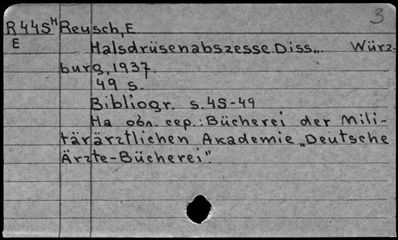 3
R44SᴴReusch,E
E Halsdrüsenabszesse.Diss... Würz-
burg,1937.
49 s.
Bibliogr. s.45-49
На обл. сер.: Bücherei der Mili-
tärärztlichen Akademie „Deutsche
Ärzte-Bücherei".